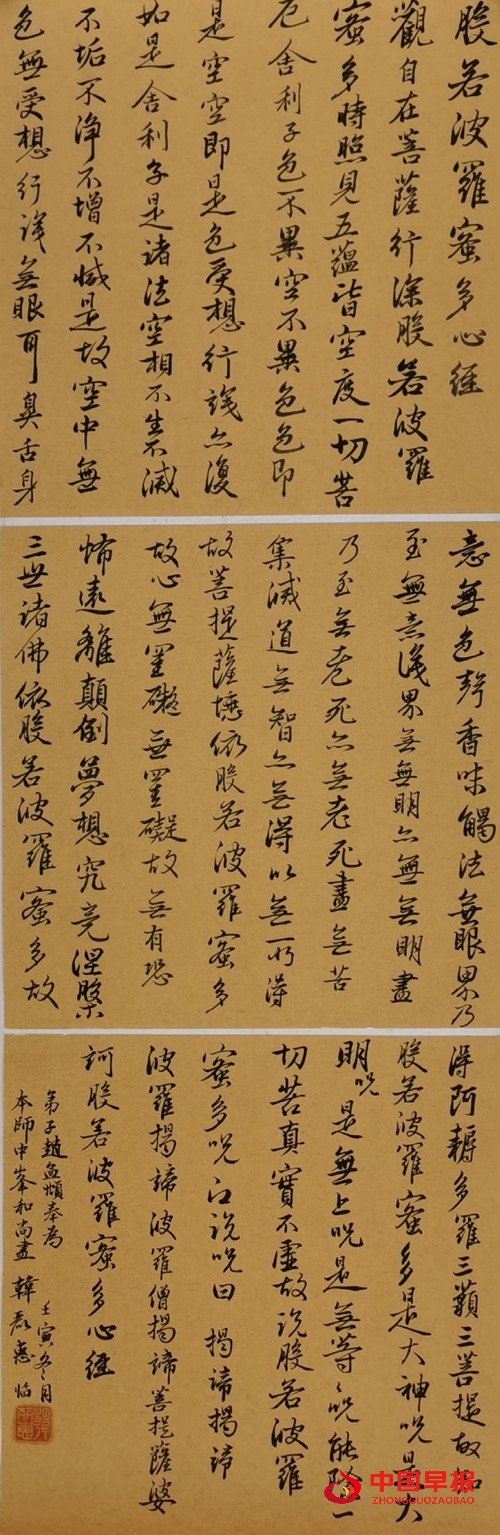 般若波羅蜜多心經
觀自在菩薩行深般若波羅
蜜多時照見五蘊皆空度一切苦
厄舍利子色不異空不異色色即
是空空即是色受想行識亦復
如是舍利子是諸法空相不生不滅
不垢不淨不增不減是故空中無
色無受想行識無眼耳鼻舌身
意無色聲香味觸法無眼界乃
至無意識界無無明亦無無明盡
乃至無老死亦無老死盡無苦
集滅道無智亦無得以無所得
故菩提薩埵依般若波羅蜜多
故心無罣礙無罣礙故無有恐
怖遠離顛倒夢想究竟涅槃
三世諸佛依般若波羅蜜多故
得阿耨多羅三藐三菩提故知
般若波羅蜜多是大神咒是大
明咒是無上咒是無等等咒能除一
切苦真實不虛故說般若波羅
蜜多咒即說咒曰揭諦揭諦
波羅揭諦波羅僧揭諦菩提薩婆
訶般若波羅蜜多心經
弟子趙孟頫奉為
本師中峯和尚書
壬寅冬月
中国早报
ZHONGGUOZAOBAO